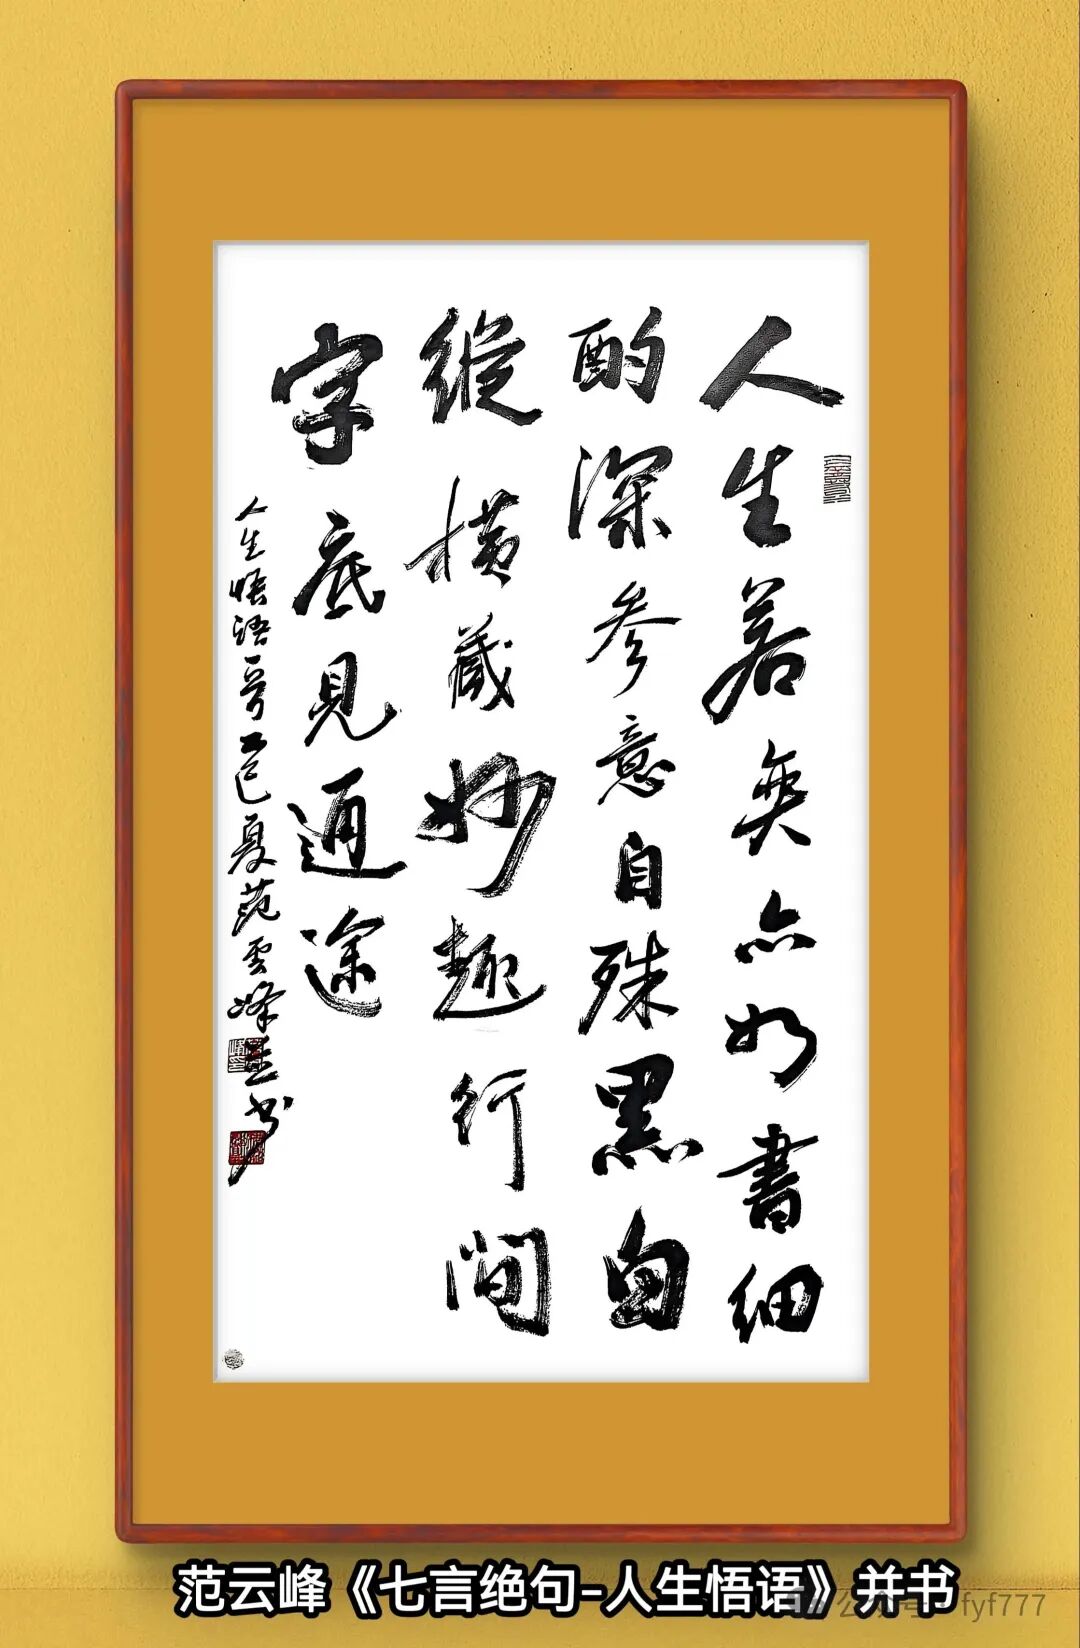 人生若奕亦如書細
酌深参意自殊黑白
縱横藏妙趣行间
字底見通途
人生悟语一首乙巳夏范雲峰并书
范云峰《七言绝句-人生悟语》并书
公众号·fyf777